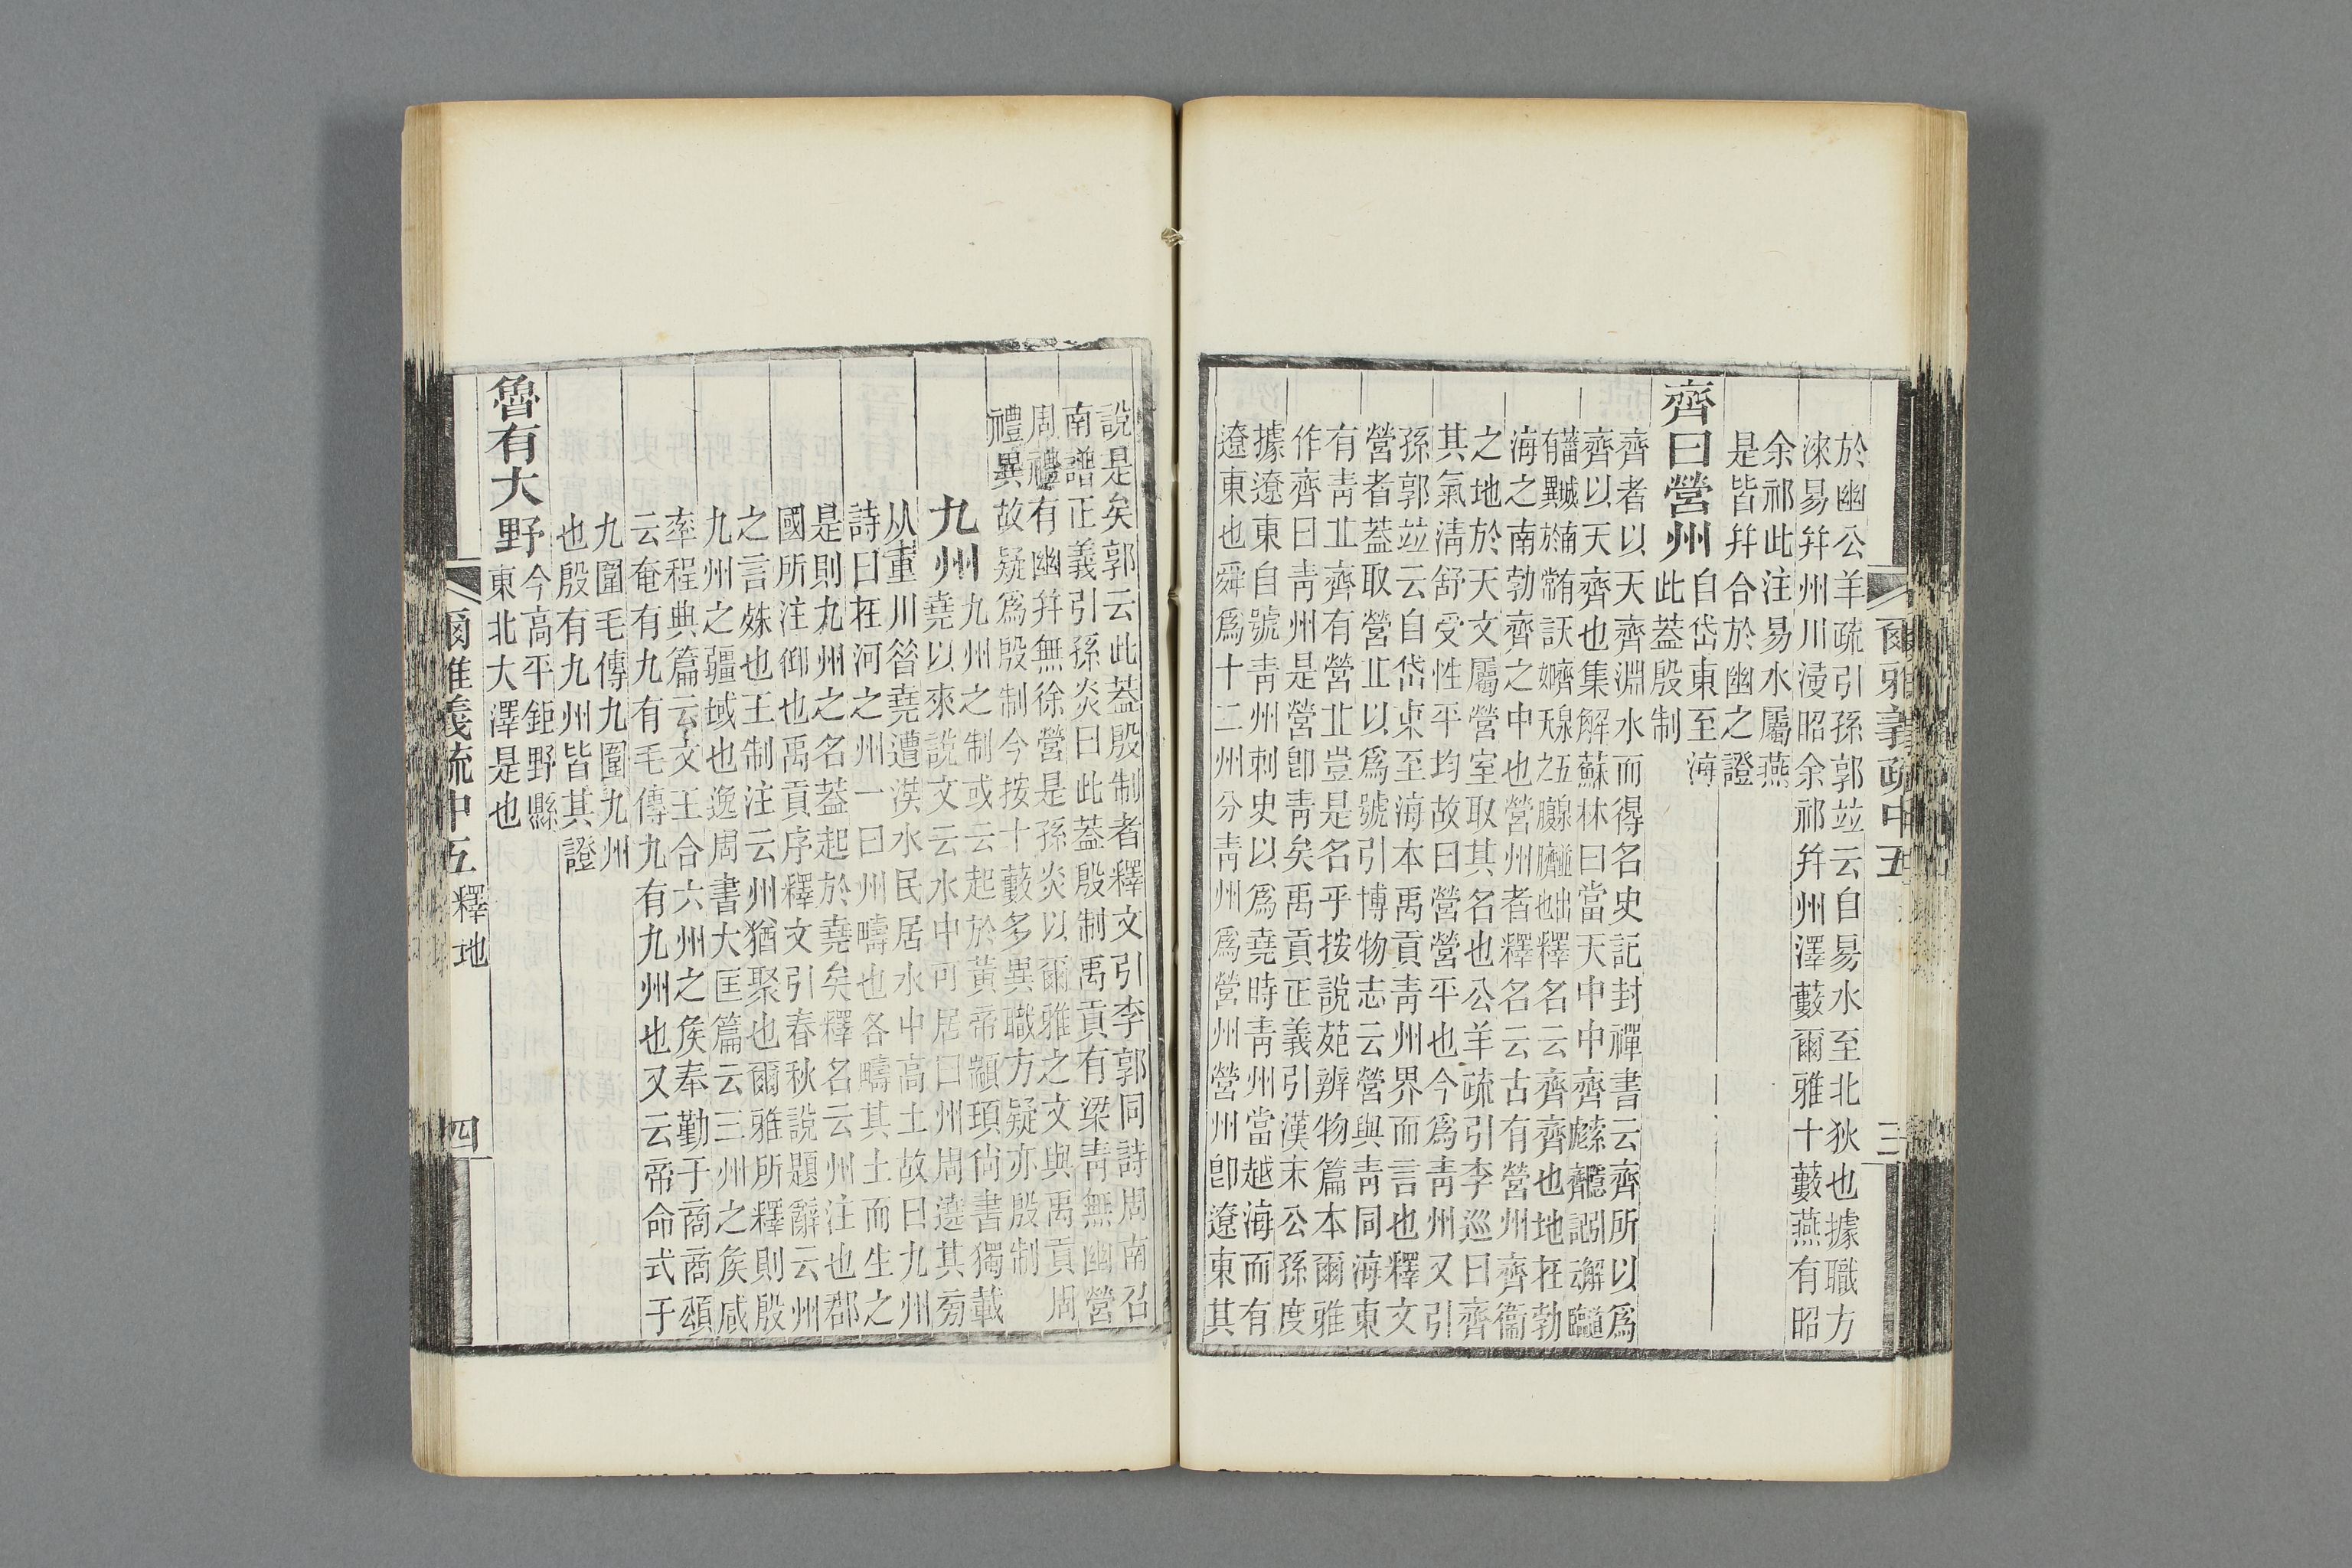 於幽公羊疏引孫郭竝云自易水至北狄也據職方
淶易幷州川濅昭余祁幷州澤藪爾雅十藪燕有昭
余祁此注易水屬燕
是皆幷合於幽之證
齊曰營州
自岱東至海
此蓋殷制
齊者以天齊淵水而得名史記封禪書云齊所以爲
齊以天齊也集解蘇林曰當天中中齊
海之南勃齊之中也營州者釋名云古有營州齊衞
之地於天文屬營室取其名也公羊疏引李巡曰齊
其氣淸舒受性平均故曰營營平也今爲靑州又引
孫郭竝云自岱東至海本禹貢靑州界而言也釋文
營者蓋取營丠以爲號引博物志云營與靑同海東
有靑丠齊有營丠豈是名乎按說苑辨物篇本爾雅
作齊曰靑州是營卽靑矣禹貢正義引漢末公孫度
據遼東自號靑州刺史以爲堯時靑州當越海而有
遼東也舜爲十二州分靑州爲營州營州卽遼東其
爾雅義疏中五
三
說是矣郭云此蓋殷制者釋文引李郭同詩周南召
南譜正義引孫炎曰此蓋殷制禹貢有梁靑無幽營
周禮有幽幷無徐營是孫炎以爾雅之文與禹貢周
禮異故疑爲殷制今按十藪多異職方疑亦殷制
九州
九州之制或云起於黃帝顓頊尙書獨載
堯以來說文云水中可居曰州周遶其菊
从重川昝堯遭洪水民居水中高土故曰九州
詩曰在河之州一曰州疇也各疇其土而生之
是則九州之名蓋起於堯矣釋名云州注也郡
國所注仰也禹貢序釋文引春秋說題辭云州
之言殊也王制注云州猶聚也爾雅所釋則殷
九州之疆域也逸周書大匡篇云三州之矦咸
率程典篇云文王合六州之矦奉勤于商商頌
云奄有九有毛傳九有九州也又云帝命式于
九圍毛傳九圍九州
也殷有九州皆其證
魯有大野
今高平鉅野縣
東北大澤是也
爾雅義疏中五 釋地
四